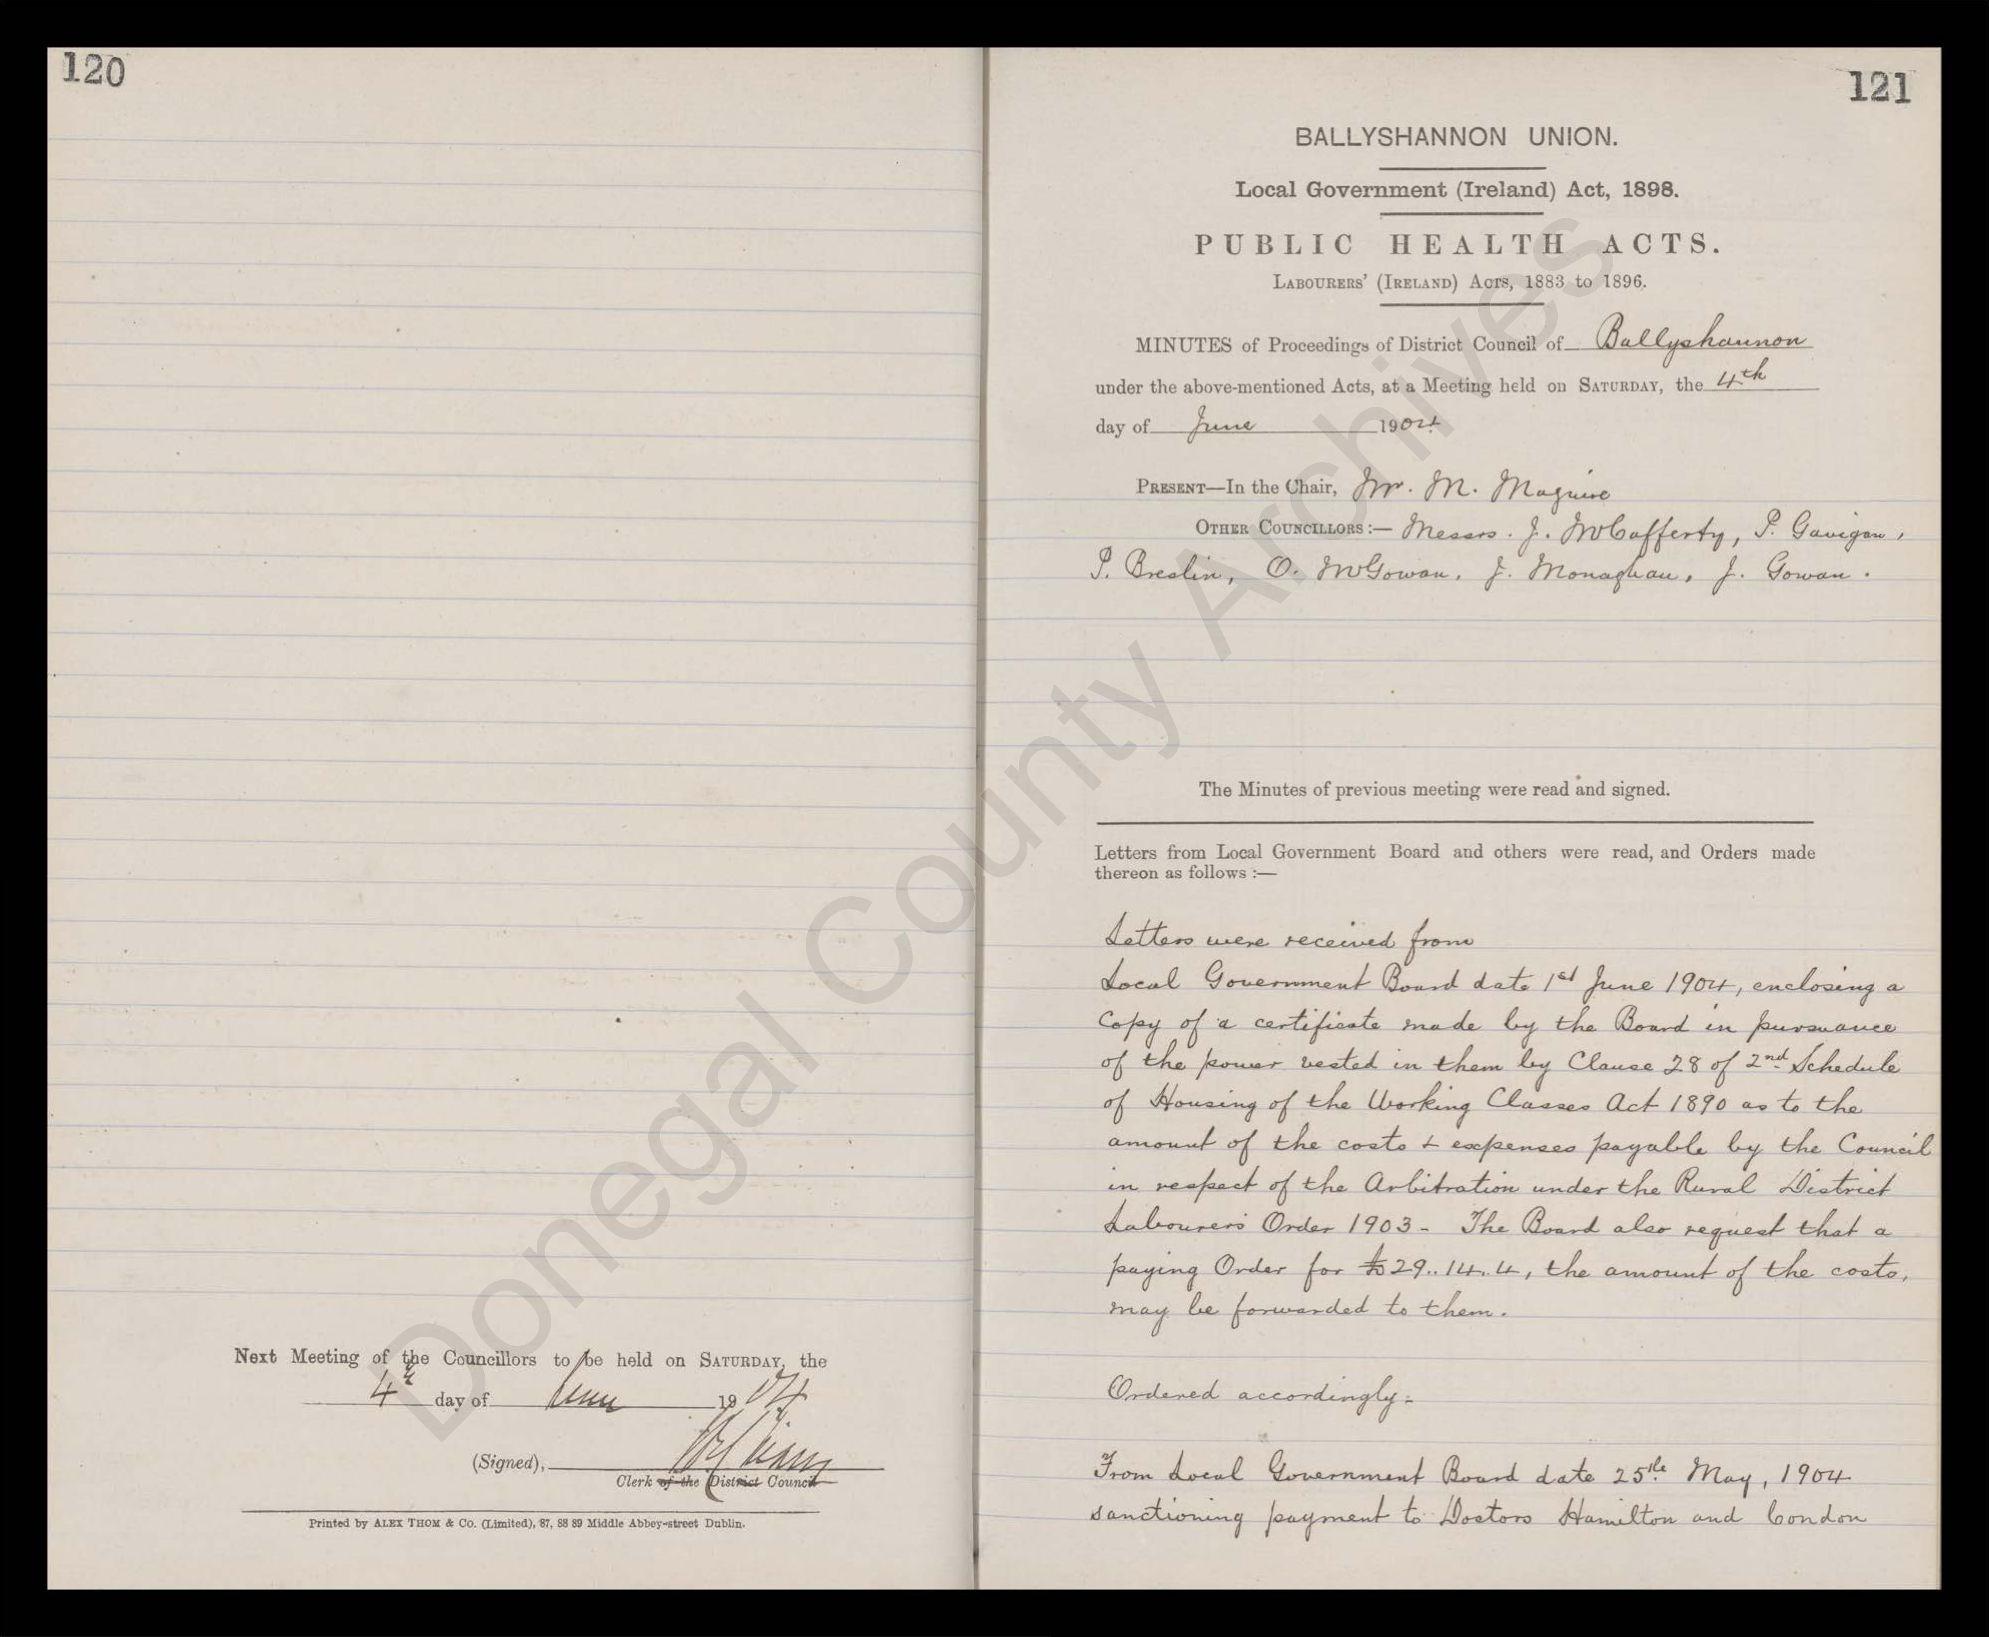 120
Next Meeting of the Councillors to be held on SATURDAY, the
4th day of June 1904
(Signed),
Clerk of the District Council
Printed by ALEX THOM & Co. (Limited), 87, 88 89 Middle Abbey-street Dublin.
121
BALLYSHANNON UNION.
Local Government (Ireland) Act, 1898.
PUBLIC HEALTH ACTS.
LABOURERS' (IRELAND) ACTS, 1883 to 1896.
MINUTES of Proceedings of District Council of Ballyshannon
under the above-mentioned Acts, at a Meeting held on SATURDAY, the 4th
day of June 1904
PRESENT—In the Chair, Mr. M. Maguire
OTHER COUNCILLORS:— Messrs. J. McCafferty, P. Gavigan,
P. Breslin, O. McGowan, J. Monaghan, J. Gowan.
The Minutes of previous meeting were read and signed.
Letters from Local Government Board and others were read, and Orders made
thereon as follows :—
Letters were received from
Local Government Board date 1st June 1904, enclosing a
Copy of a certificate made by the Board in pursuance
of the power vested in them by Clause 28 of 2nd Schedule
of Housing of the Working Classes Act 1890 as to the
amount of the costs & expenses payable by the Council
in respect of the Arbitration under the Rural District
Labourers Order 1903 - The Board also request that a
paying Order for £29..14..4, the amount of the costs,
may be forwarded to them.
Ordered accordingly:
From Local Government Board date 25th May, 1904
sanctioning payment to Doctors Hamilton and Condon
Donegal County Archives